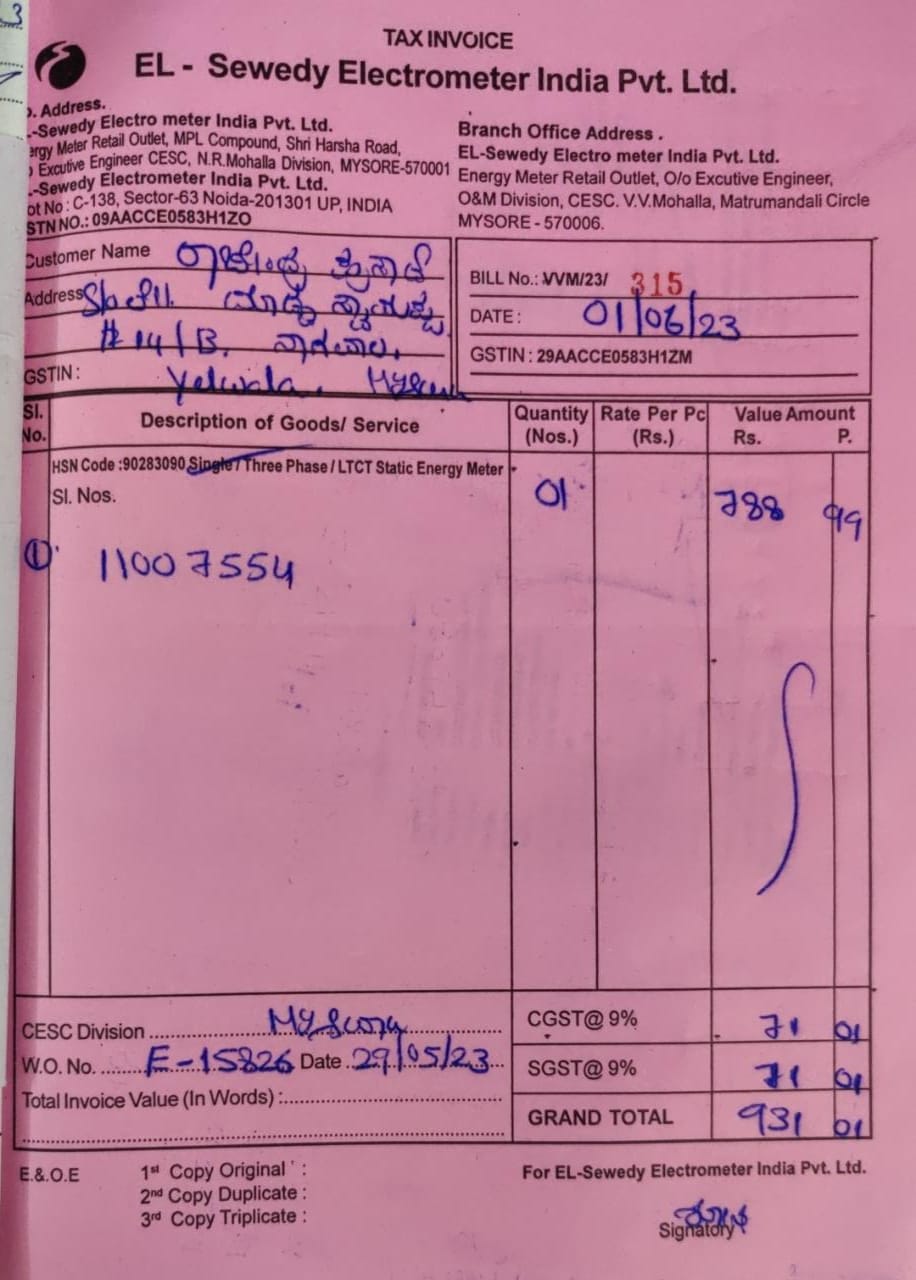 3
TAX INVOICE
EL - Sewedy Electrometer India Pvt. Ltd.
o. Address.
-Sewedy Electro meter India Pvt. Ltd.
ergy Meter Retail Outlet, MPL Compound, Shri Harsha Road,
o Excutive Engineer CESC, N.R.Mohalla Division, MYSORE-570001
-Sewedy Electrometer India Pvt. Ltd.
ot No : C-138, Sector-63 Noida-201301 UP, INDIA
STN NO.: 09AACCE0583H1ZO
Branch Office Address .
EL-Sewedy Electro meter India Pvt. Ltd.
Energy Meter Retail Outlet, O/o Excutive Engineer,
O&M Division, CESC. V.V.Mohalla, Matrumandali Circle
MYSORE - 570006.
Customer Name
Address S/o
# 14/B,
GSTIN : Yelwala, Mysuru
BILL No.: VVM/23/ 315
DATE : 01/06/23
GSTIN : 29AACCE0583H1ZM
Sl. No. Description of Goods/ Service Quantity (Nos.) Rate Per Pc (Rs.) Value Amount Rs. P.
HSN Code :90283090 Single / Three Phase / LTCT Static Energy Meter
Sl. Nos. 01 788 99
① 11007554
CESC Division Mysuru CGST@ 9% 71 01
W.O. No. E-15826 Date 29/05/23 SGST@ 9% 71 01
Total Invoice Value (In Words) : GRAND TOTAL 931 01
E.&.O.E 1st Copy Original : For EL-Sewedy Electrometer India Pvt. Ltd.
2nd Copy Duplicate :
3rd Copy Triplicate :
Signatory